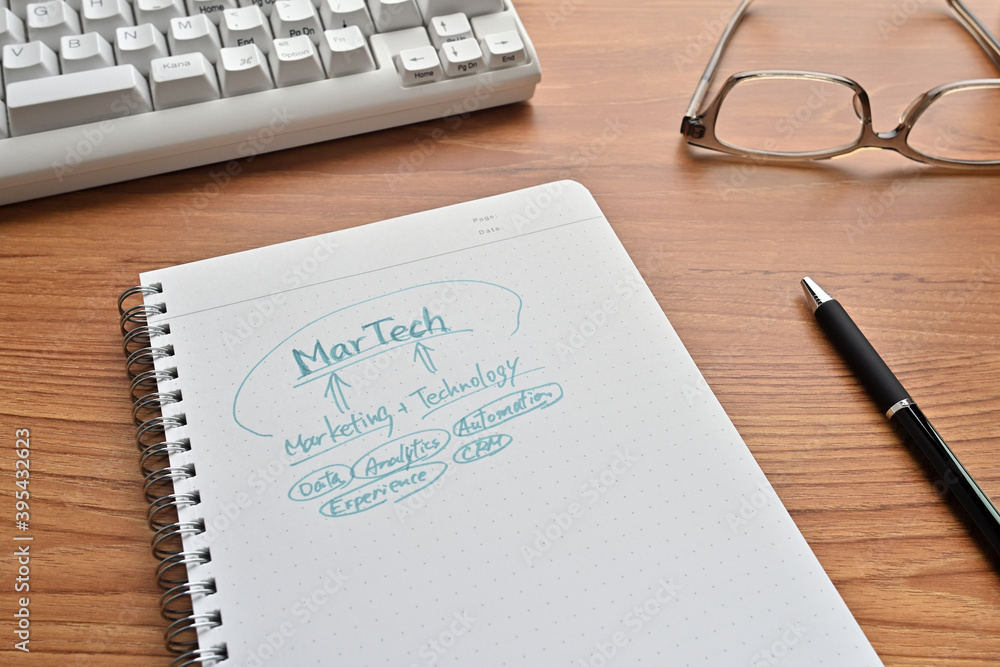 Page:
Date:
MarTech
Marketing + Technology
Data Analytics Automation
Experience CRM
G H M Home
V B N Pg Up
Kana alt option Home Pg Dn End
Adobe Stock | #395432623